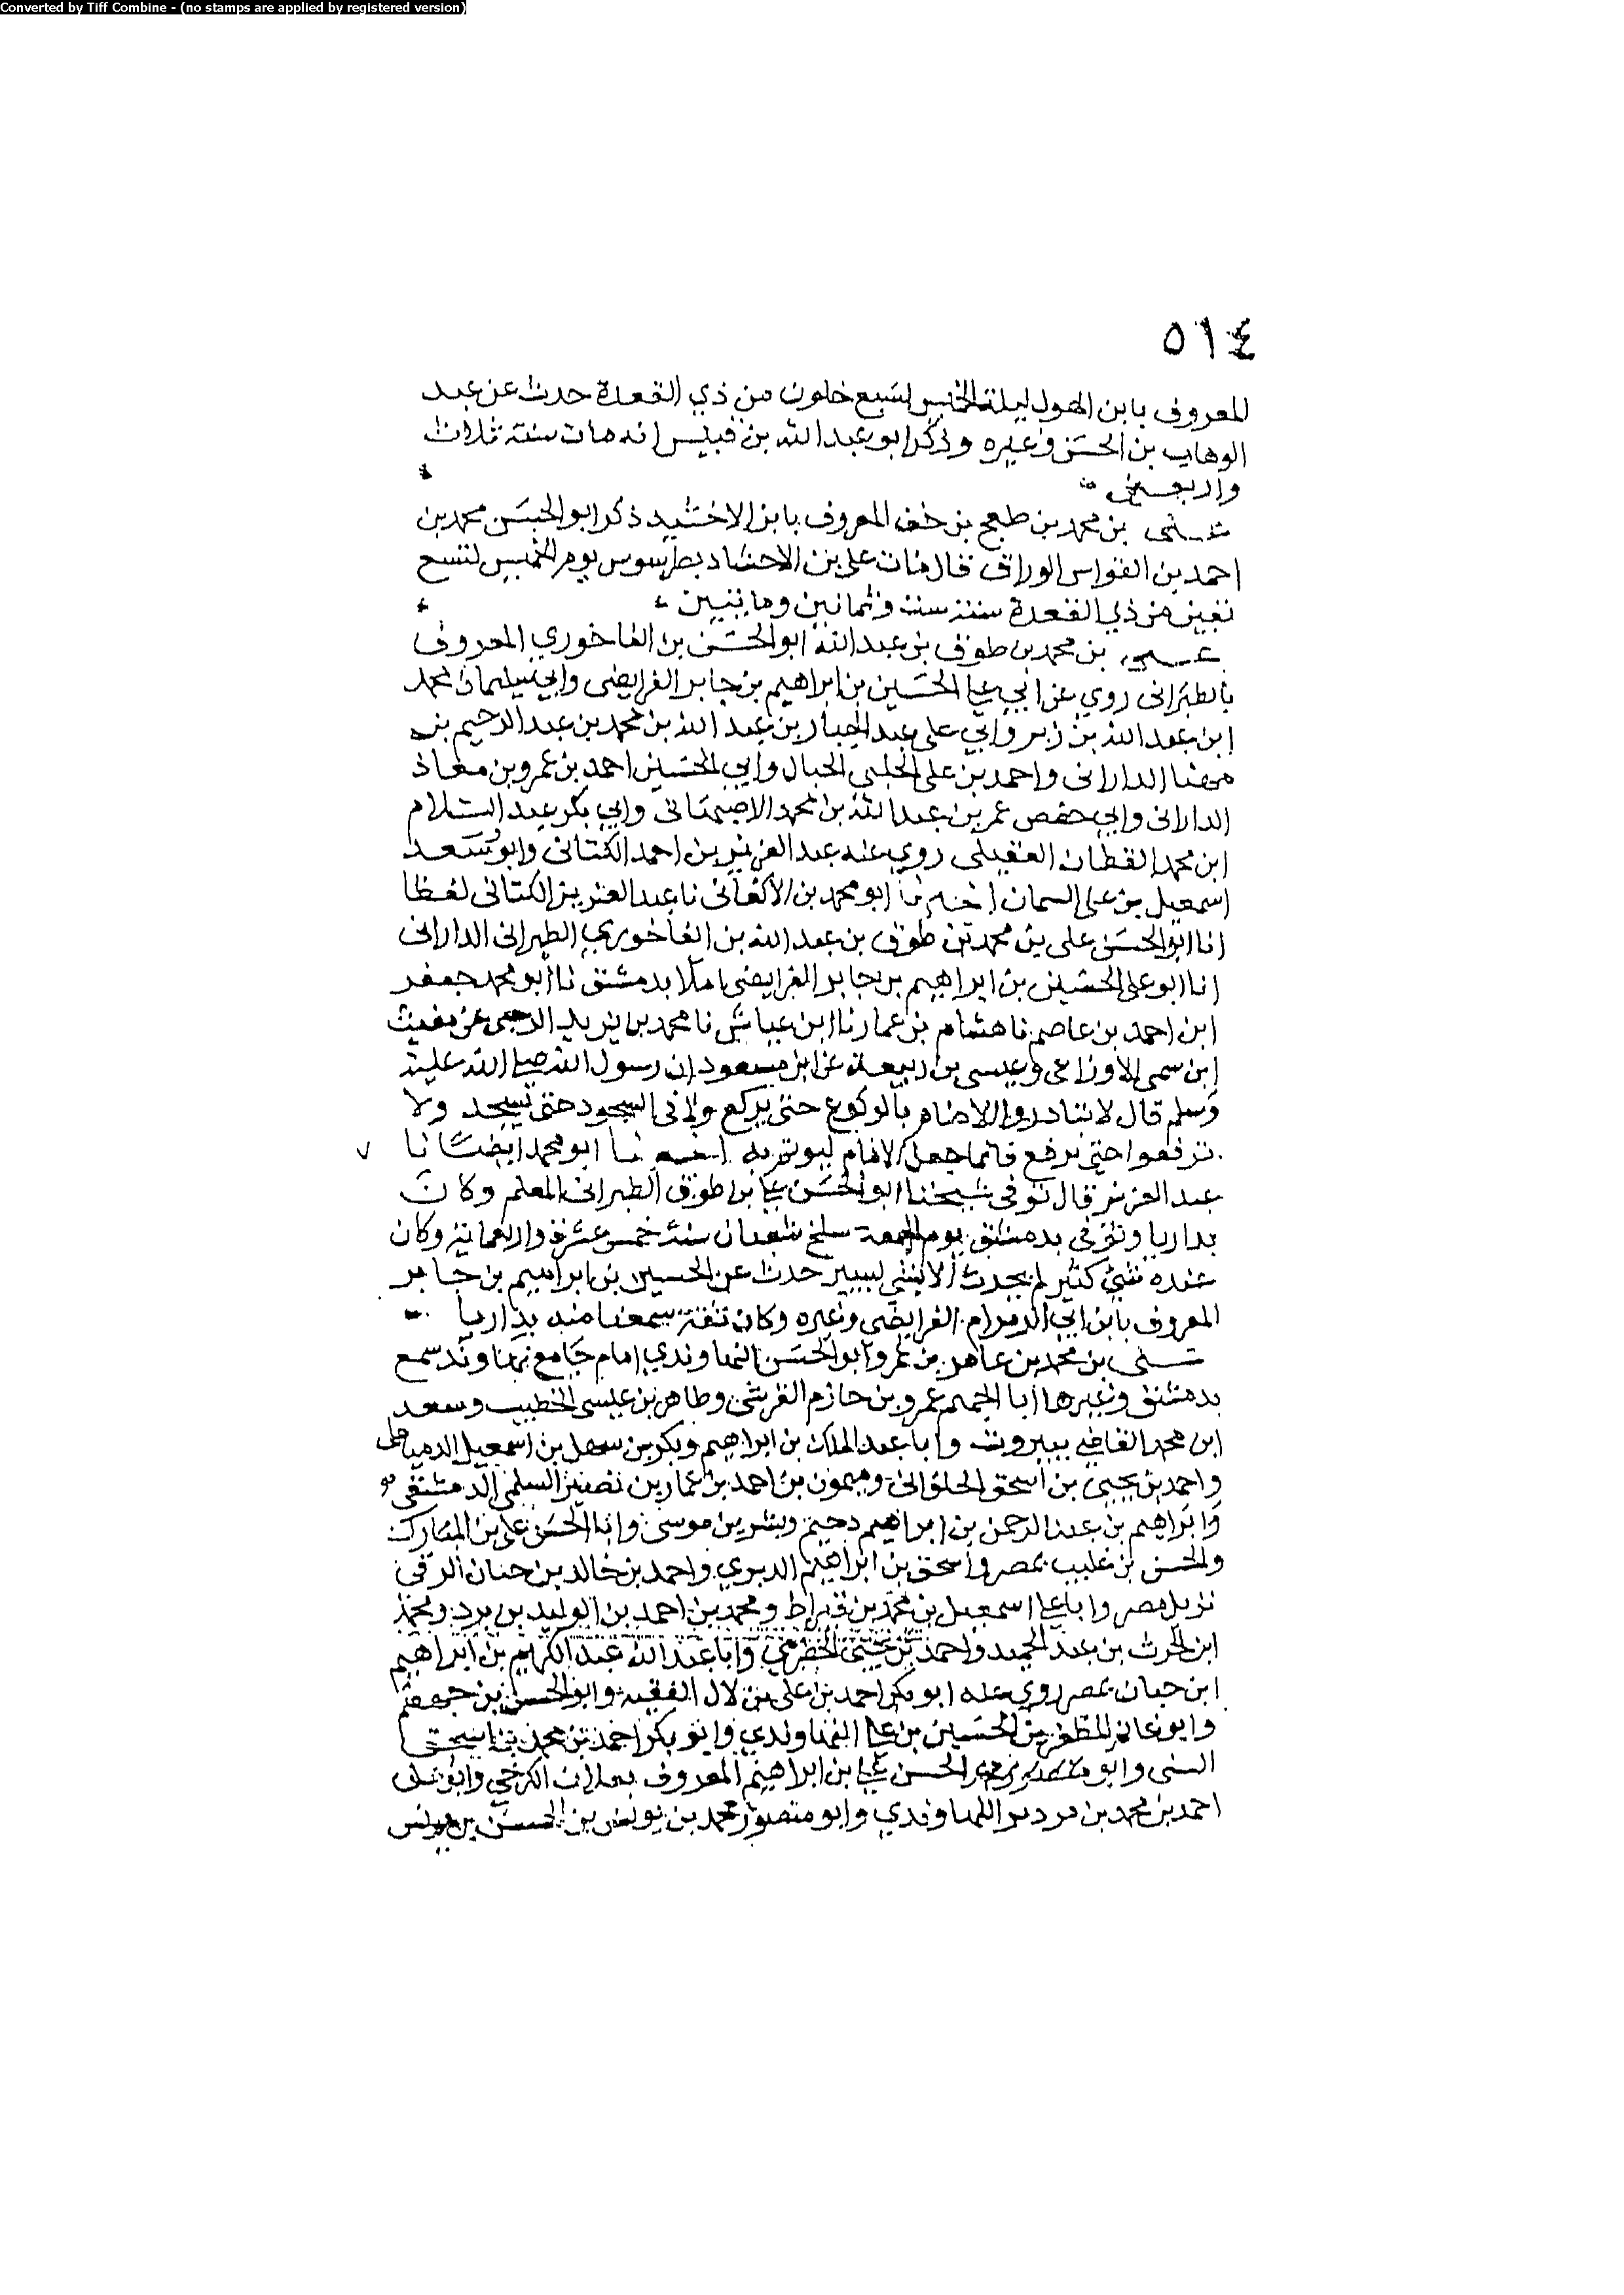 Converted by Tiff Combine - (no stamps are applied by registered version)
٥١٤
المعروف بابن الهول ليلة الخميس لسبع خلون من ذي القعدة حدث عن عبد
الوهاب بن الحسن وغيره وذكر ابو عبد الله بن قبيس انه مات سنة ثلاث
واربعين
علي بن محمد بن طغج بن خف المعروف بابن الاخشيد ذكر ابو الحسن محمد بن
احمد بن القواس الوراق قال مات علي بن الاخشاد بطرسوس يوم الخميس لتسع
بقين من ذي القعدة سنة ست وثمانين ومايتين
علي بن محمد بن طوق بن عبد الله ابو الحسن بن الفاخوري المعروف
بالطبراني روي عن ابي علي الحسين بن ابراهيم بن جابر الفرايضي وابي سليمان محمد
ابن عبد الله بن زبر وابي علي عبد الجبار بن عبد الله بن محمد بن عبد الرحيم بن
مهنا الداراني واحمد بن علي الحلبي الحبال وابي الحسين احمد بن عمرو بن معاذ
الداراني وابي حفص عمر بن عبد الله بن محمد الاصبهاني وابي بكر عبد السلام
ابن محمد القطان العقيلي روي عنه عبد العزيز بن احمد الكتاني وابو سعد
اسمعيل بن علي السمان اخبرنا ابو محمد بن الاكفاني نا عبد العزيز الكتاني لفظا
انا ابو الحسن علي بن محمد بن طوق بن عبد الله بن الفاخوري الطبراني الداراني
انا ابو علي الحسين بن ابراهيم بن جابر الفرايضي املا بدمشق نا ابو محمد جعفر
ابن احمد بن عاصم نا هشام بن عمار نا ابن عياش نا محمد بن يزيد الرحبي عن مغيث
ابن سمي الاوزاعي وعيسى بن ربيعة عن ابن مسعود ان رسول الله صلى الله عليه
وسلم قال لا تبادروا الامام بالركوع حتى يركع ولا في السجود حتى يسجد ولا
ترفعوا حتى يرفع فانما جعل الامام ليوتم به اخبرنا ابو محمد ايضا نا
عبد العزيز قال توفي شيخنا ابو الحسن علي بن طوق الطبراني المعلم وكان
بداريا وتوفي بدمشق يوم الجمعة سلخ شعبان سنة خمس عشرة واربعماية وكان
عنده شيئ كثير لم يحدث الا بشئ يسير حدث عن الحسين بن ابراهيم بن جابر
المعروف بابن ابي الزمزام الفرايضي وغيره وكان ثقة سمعنا منه بداريا
علي بن محمد بن عامر بن عمرو ابو الحسن النهاوندي امام جامع نهاوند سمع
بدمشق وغيرها ابا الجهم عمرو بن حازم القرشي وطاهر بن عيسى الخطيب وسعد
ابن محمد القاضي ببيروت وابا عبد الملك بن ابراهيم وبكر بن سهل بن اسمعيل الدمياطي
واحمد بن يحيى بن اسحق الحلواني وميمون بن احمد بن عمار بن نصير السلمي الدمشقي
وابراهيم بن عبد الرحمن بن ابراهيم دحيم وبشر بن موسى وابا الحسن علي بن المبارك
والحسن بن غليب بمصر واسحق بن ابراهيم الدبري واحمد بن خالد بن حنان الرقي
نزيل مصر وابا علي اسمعيل بن محمد بن قيراط ومحمد بن احمد بن الوليد بن برد ومحمد
ابن الحرث بن عبد الحميد واحمد بن يحيى الحضرمي وابا عبد الله عبد الكريم بن ابراهيم
ابن حبان بمصر روي عنه ابو بكر احمد بن علي بن لال الفقيه وابو الحسن بن جهضم
وابو غانم المظفر بن الحسين بن علي النهاوندي وابو بكر احمد بن محمد بن اسحق
السني وابو الحسن علي بن ابراهيم المعروف بعلان الكرخي وابو علي
احمد بن محمد بن النهاوندي وابو منصور محمد بن يونس بن الحسن بن يونس